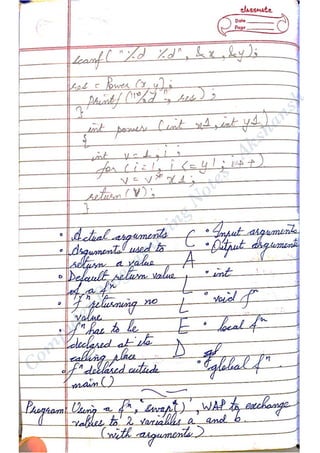 classmate
Date
Page
scanf ( "%d %d", &x, &y);
res = Power (x, y);
printf("%d", res);
}
int power (int x1, int y1)
{
int v=1, i;
for (i=1; i<=y1; i++)
v = v* x1;
return (V);
}
• Actual arguments
• Arguments used to
return a value
• Default return value
of a fⁿ
• fⁿ returning no
value
• fⁿ has to be
declared at its
calling place
• fⁿ declared outside
main()
C
A
L
L
E
D
• Input arguments
• Output arguments
• int
• void fⁿ
• local fⁿ
• global fⁿ.
Program: Using a fⁿ, 'swap()', WAP to exchange
values to 2 variables a and b.
(with arguments)